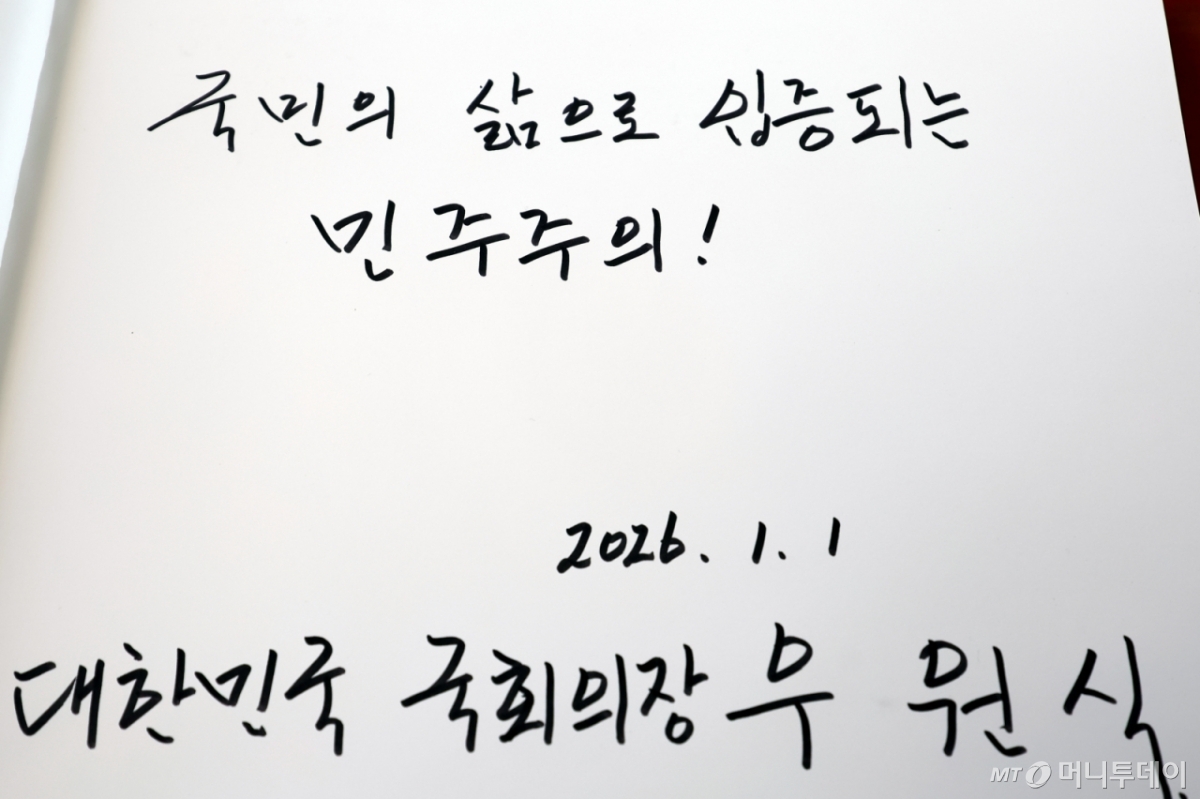 국민의 삶으로 입증되는
민주주의!
2026. 1. 1
대한민국 국회의장 우 원 식
MT 머니투데이